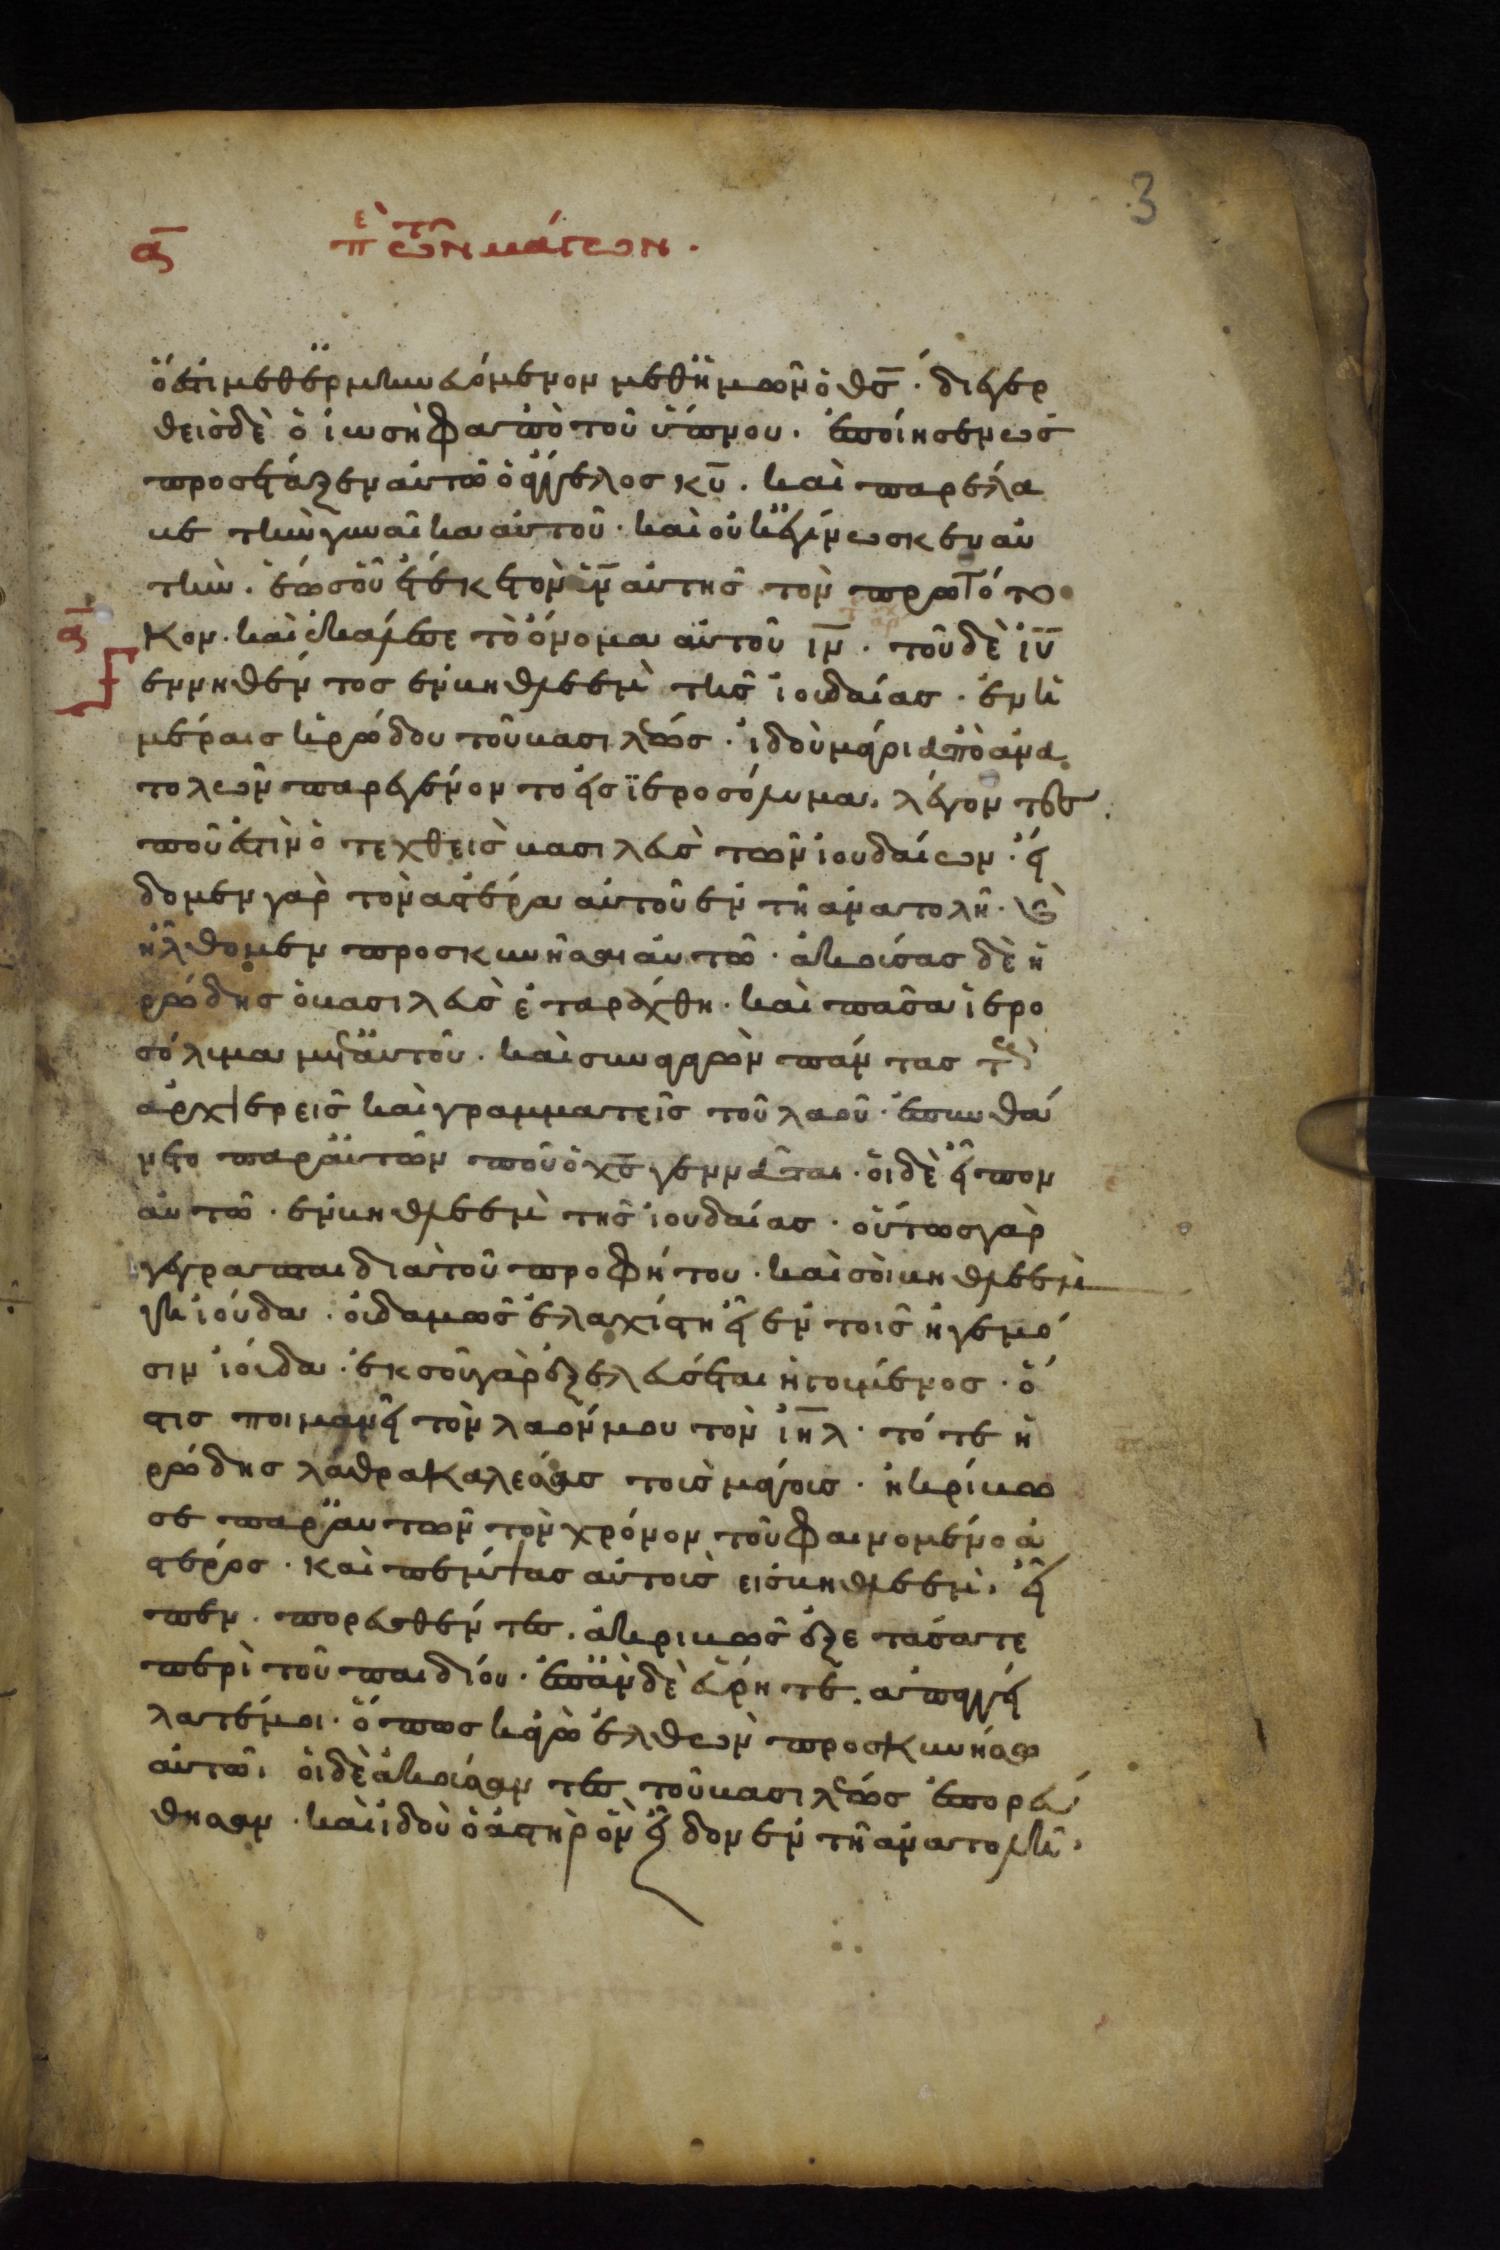 3
α̅ περὶ τῶν μάγων.
ὅ ἐστι μεθερμηνευόμενον μεθ ἡμῶν ὁ θς̅. διεγερ
θεὶς δὲ ὁ ἰωσὴφ ἀπὸ τοῦ ὕπνου. ἐποίησεν ὡς
προσέταξεν αὐτῶ ὁ ἄγγελος κυ̅. καὶ παρέλα
βε τὴν γυναῖκα αὐτοῦ. καὶ οὐκ ἐγίνωσκεν αὐ
τὴν. ἕως οὗ ἔτεκε τὸν υν̅ αὐτῆς τὸν πρωτότο
α̅ κον. καὶ ἐκάλεσε τὸ ὄνομα αὐτοῦ ιν̅. τοῦ δὲ ιυ̅
γεννηθέντος ἐν βηθλεὲμ τῆς ἰουδαίας. ἐν ἡ
μέραις ἡρώδου τοῦ βασιλέως. ἰδοὺ μάγοι ἀπὸ ἀνα
τολῶν παρεγένοντο εἰς ϊεροσόλυμα. λέγοντες.
ποῦ ἐστὶν ὁ τεχθεὶς βασιλεὺς τῶν ἰουδαίων. εἴ
δομεν γὰρ τὸν ἀστέρα αὐτοῦ ἐν τῆ ἀνατολῆ. καὶ
ἤλθομεν προσκυνῆσαι αὐτῶ. ἀκούσας δὲ ἡ
ρώδης ὁ βασιλεὺς ἐταράχθη. καὶ πᾶσα ἱερο
σόλυμα μετ αὐτοῦ. καὶ συναγαγὼν πάντας τοὺς
ἀρχιερεῖς καὶ γραμματεῖς τοῦ λαοῦ. ἐπυνθά
νετο παρ αὐτῶν ποῦ ὁ χς̅ γεννᾶται. οἱ δὲ εἶπον
αὐτῶ. ἐν βηθλεὲμ τῆς ἰουδαίας. οὕτως γὰρ
γέγραπται διὰ τοῦ προφήτου. καὶ σὺ βηθλεὲμ
γῆ ἰούδα. οὐδαμῶς ἐλαχίστη εἶ ἐν τοῖς ἡγεμό
σιν ἰούδα. ἐκ σοῦ γὰρ ἐξελεύσεται ἡγούμενος. ὅ
στις ποιμανεῖ τὸν λαόν μου τὸν ιη̅λ. τότε ἡ
ρώδης λάθρα καλέσας τοὺς μάγους. ἠκρίβω
σε παρ αὐτῶν τὸν χρόνον τοῦ φαινομένου ἀ
στέρος. καὶ πέμψας αὐτοὺς εἰς βηθλεὲμ. εἶ
πεν. πορευθέντες. ἀκριβῶς ἐξετάσατε
περὶ τοῦ παιδίου. ἐπὰν δὲ εὕρητε. ἀπαγγεί
λατέ μοι. ὅπως κἀγὼ ἐλθὼν προσκυνήσω
αὐτῶ. οἱ δὲ ἀκούσαντες τοῦ βασιλέως ἐπορεύ
θησαν. καὶ ἰδοὺ ὁ ἀστὴρ ὃν εἶδον ἐν τῆ ἀνατολῆ.